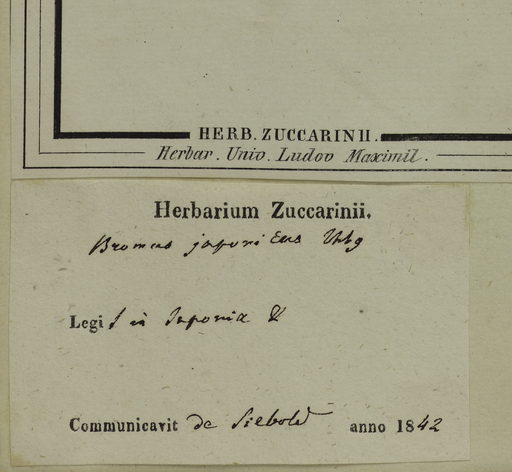 HERB. ZUCCARINII.
Herbar. Univ. Ludov Maximil.
Herbarium Zuccarinii.
Bromus japonicus Thbg
Legi in Japonia
Communicavit de Siebold anno 1842